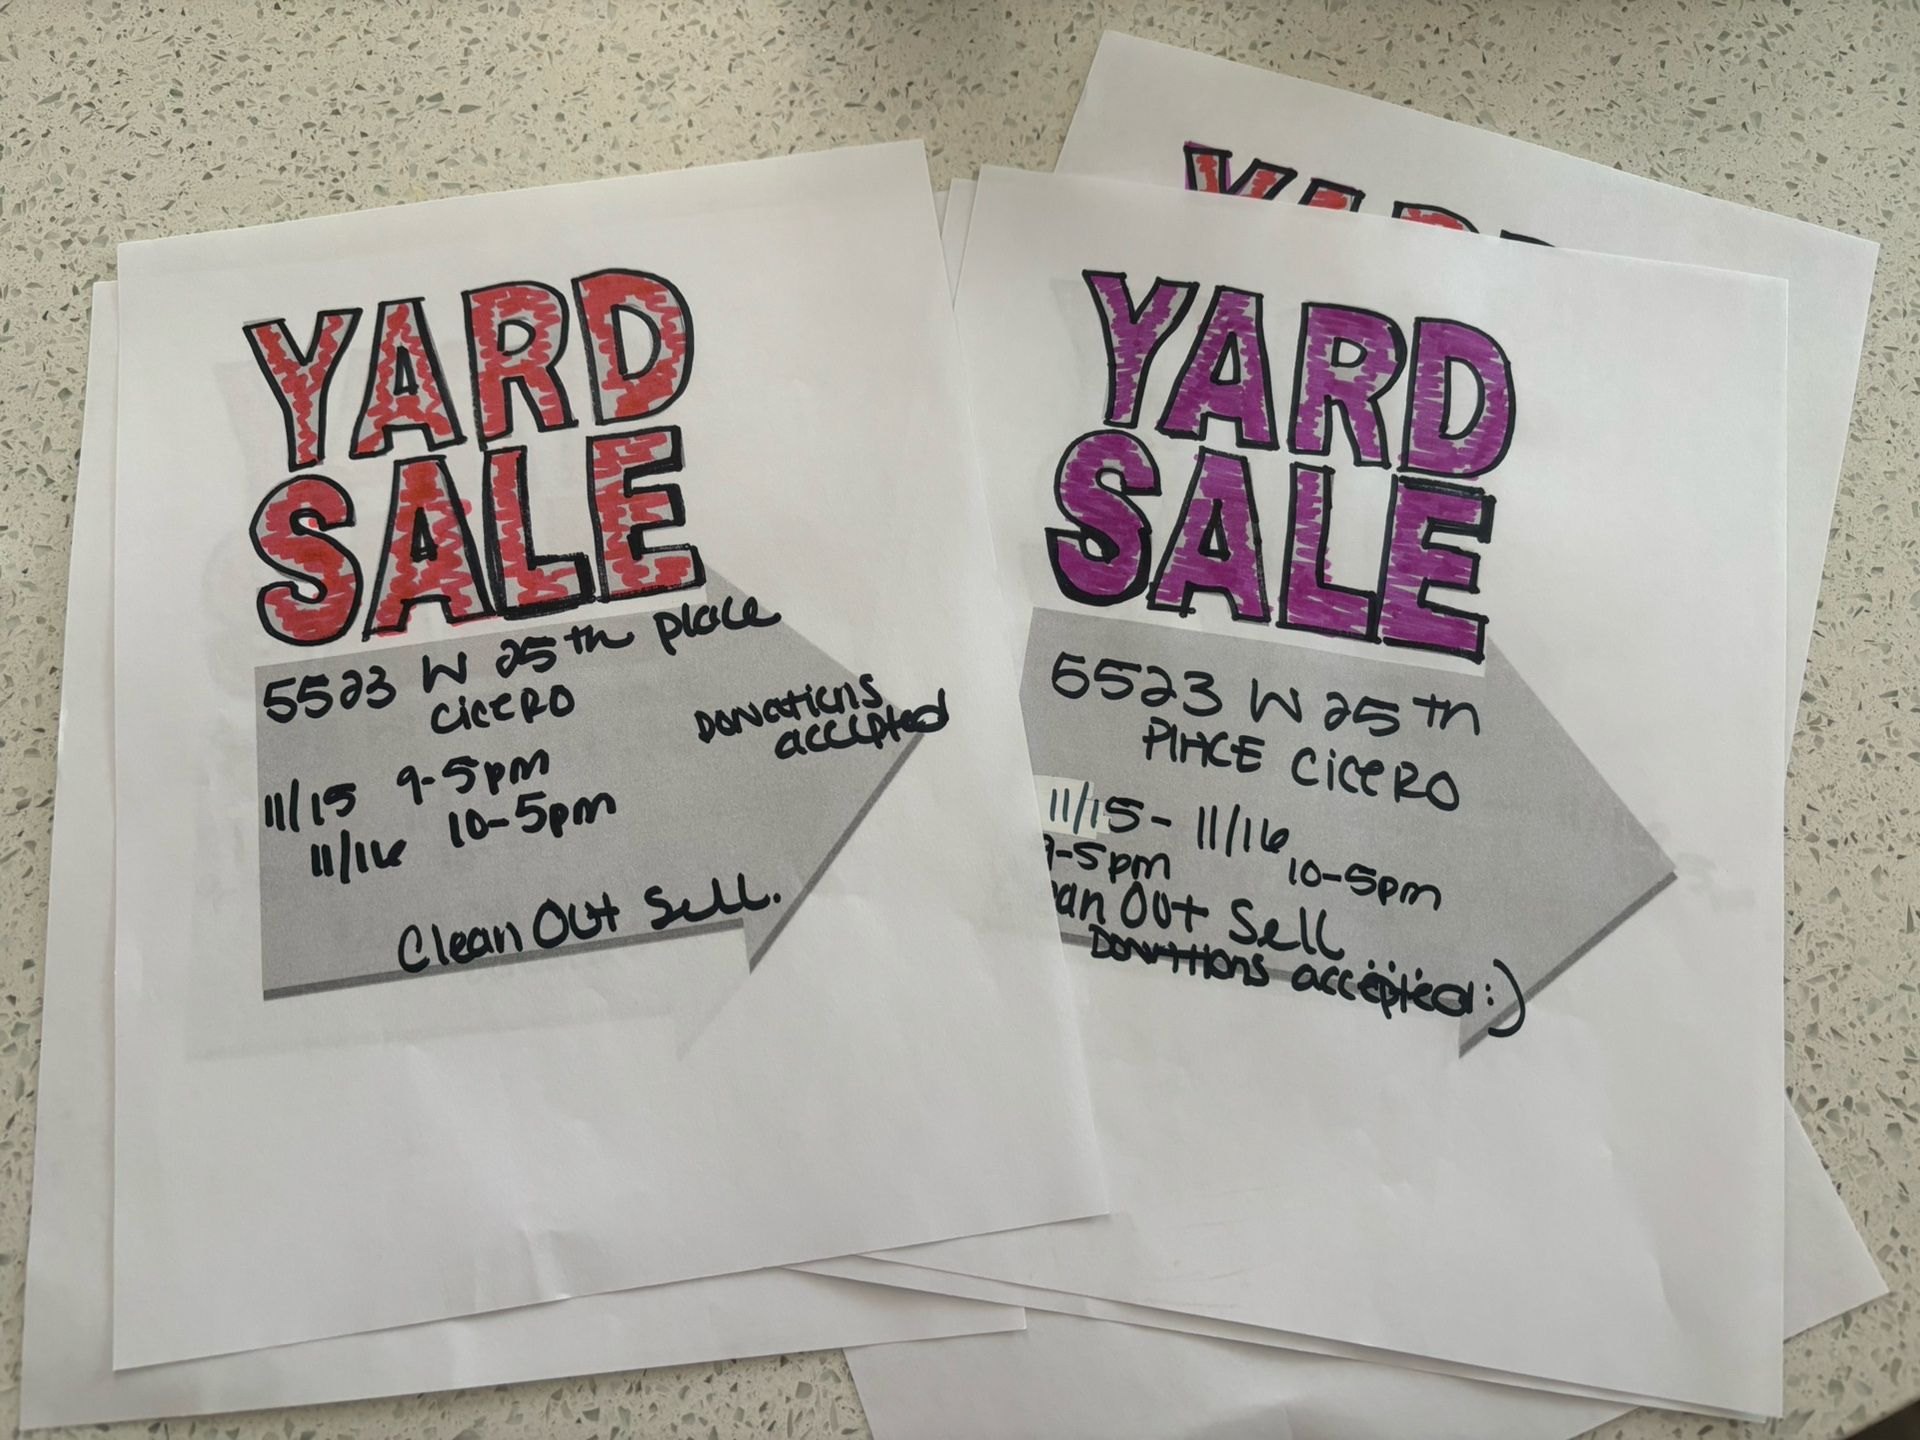 YARD
SALE
5523 W 25th place
CICERO
DONATIONS
accepted
11/15 9-5pm
11/16 10-5pm
Clean Out Sell.
YARD
YARD
SALE
5523 W 25th
PLACE CICERO
11/15- 11/16
9-5pm 10-5pm
an Out Sell
DONATIONS accepted :)